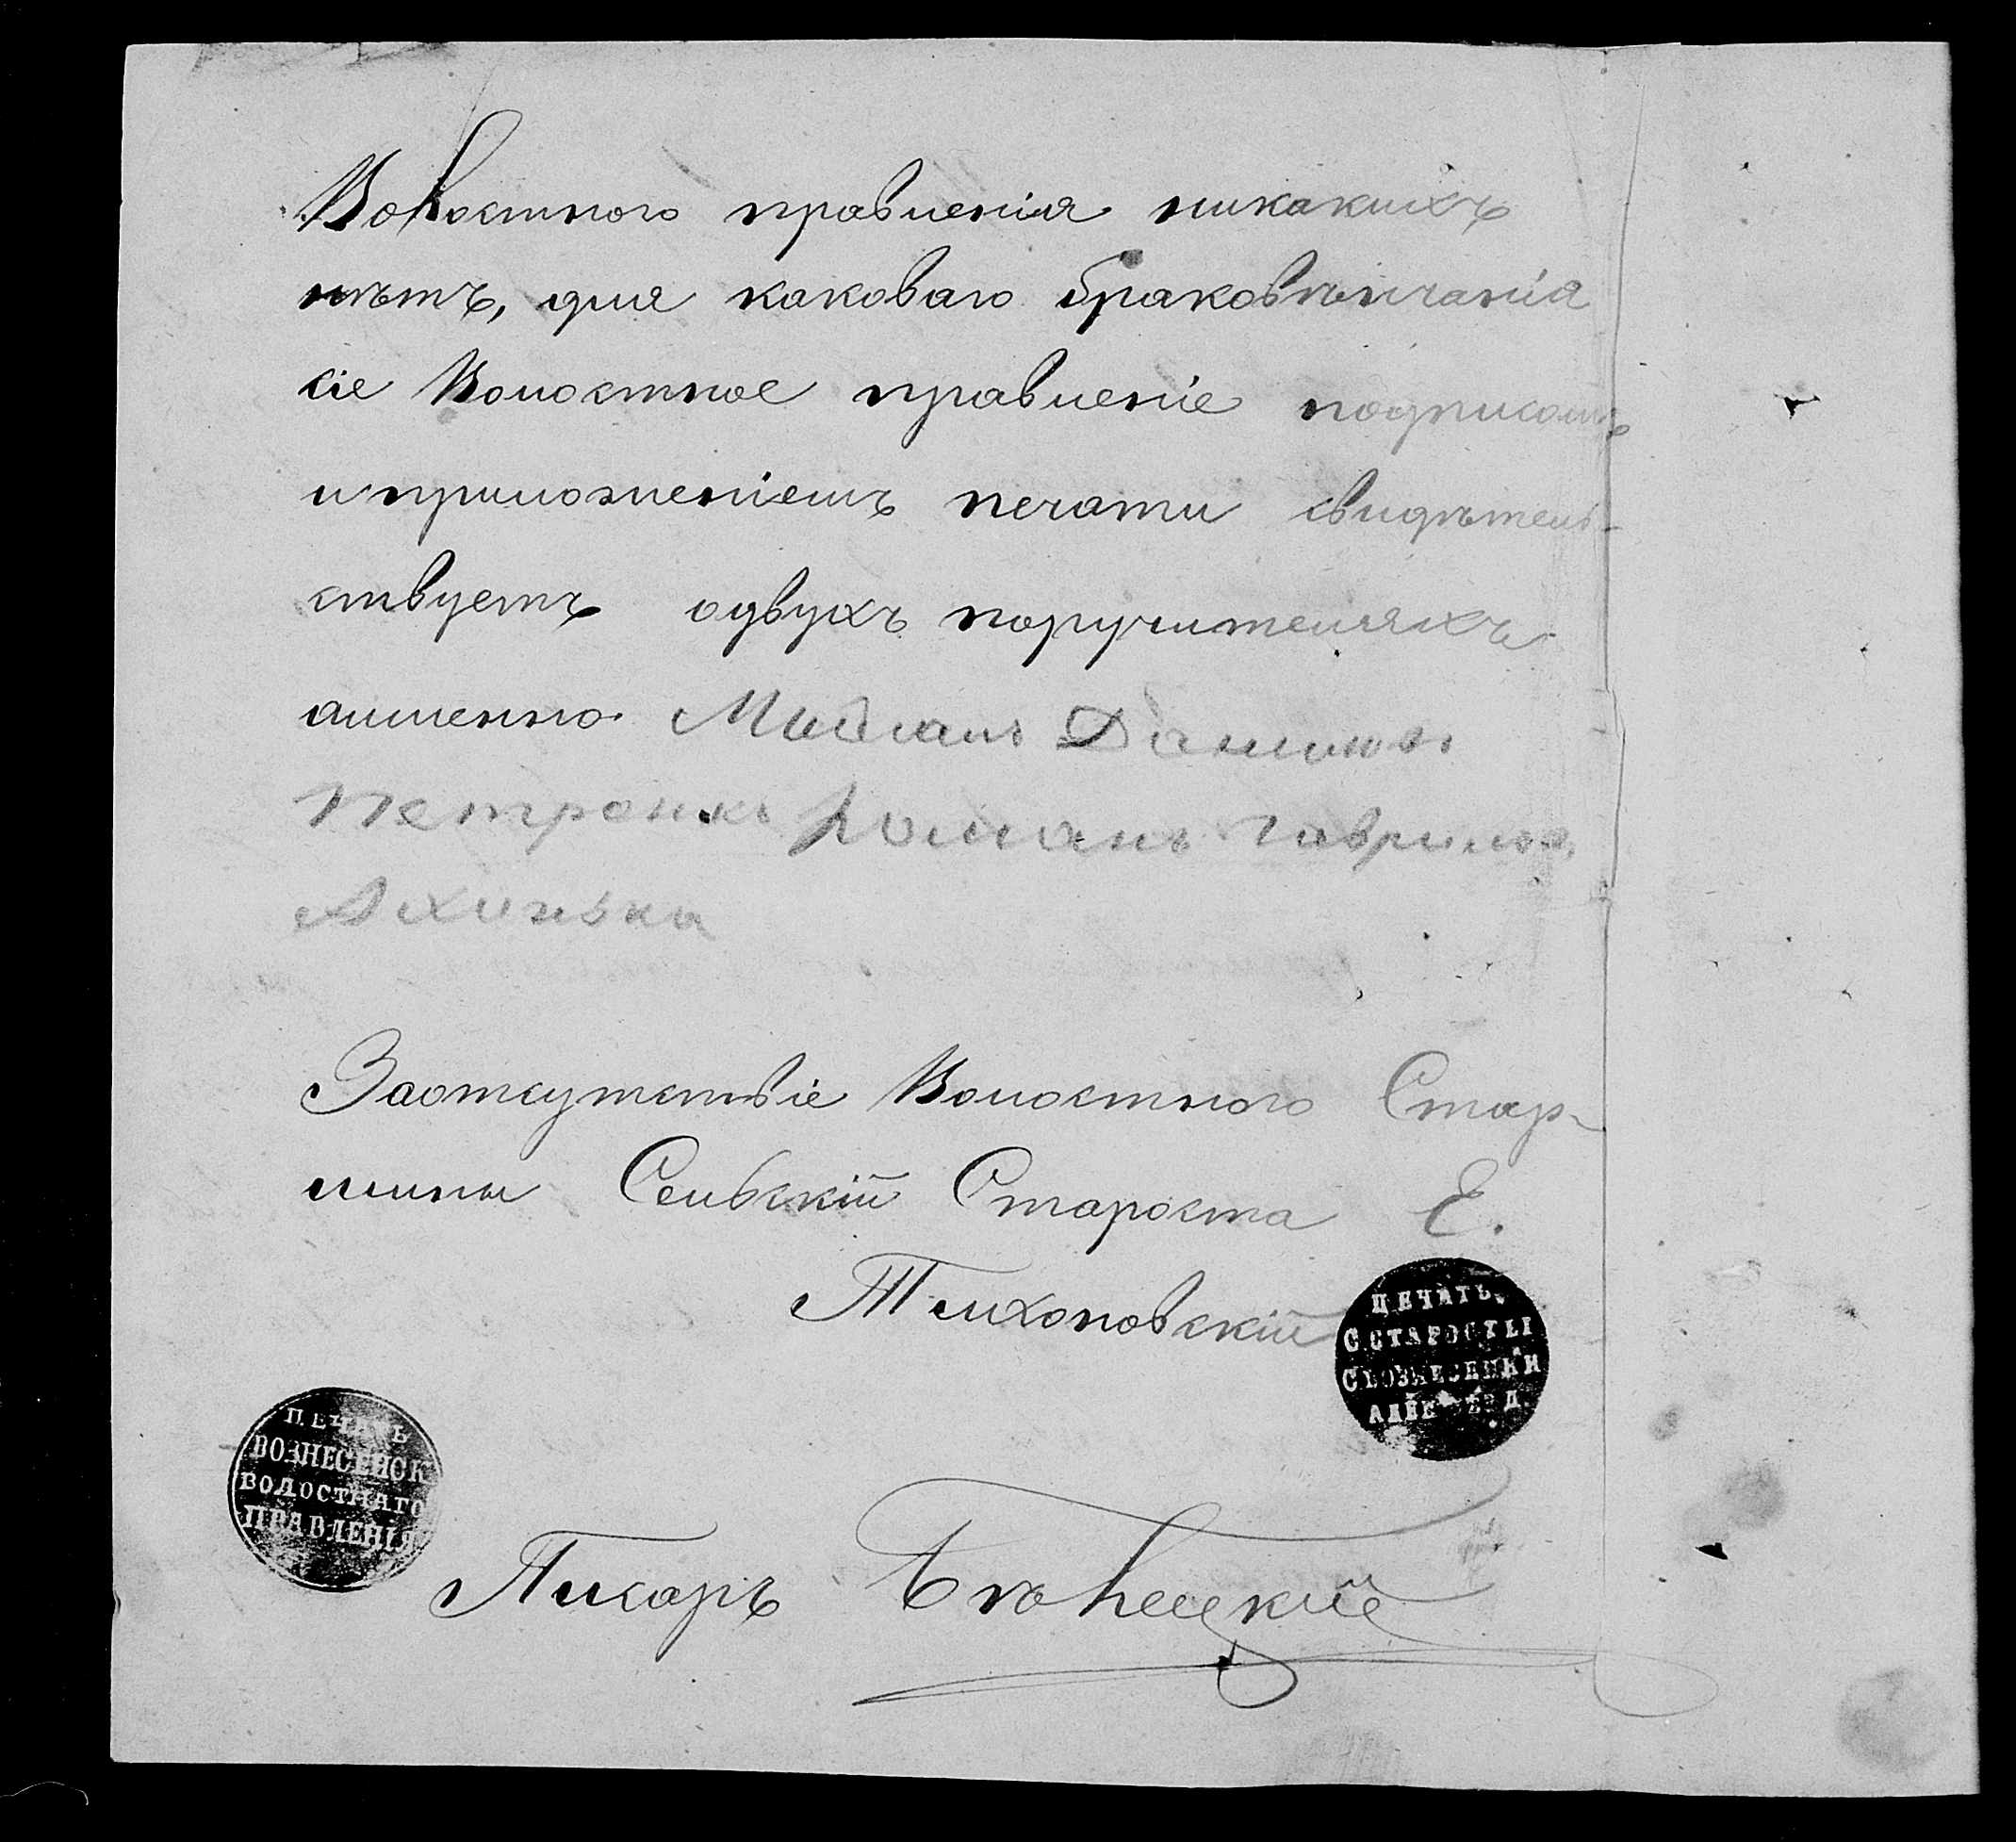 Волостного правленія никакихъ
нѣтъ, для каковаго браковѣнчанія
сіе Волостное правленіе подписомъ
и приложеніемъ печати свидѣтель-
ствуетъ одвухъ поручителяхъ
аименно
Петренко Романъ Гаврилов
Заотсутствіе Волостного Стар-
шины Сельскій Староста Е.
Тихоновскій
ПЕЧАТЬ
С. СТАРОСТЫ
С ВОЗНЕСЕНКИ
ПЕЧАТЬ
ВОЗНЕСЕНСК
ВОЛОСТНАГО
ПРАВЛЕНІЯ
Писарь